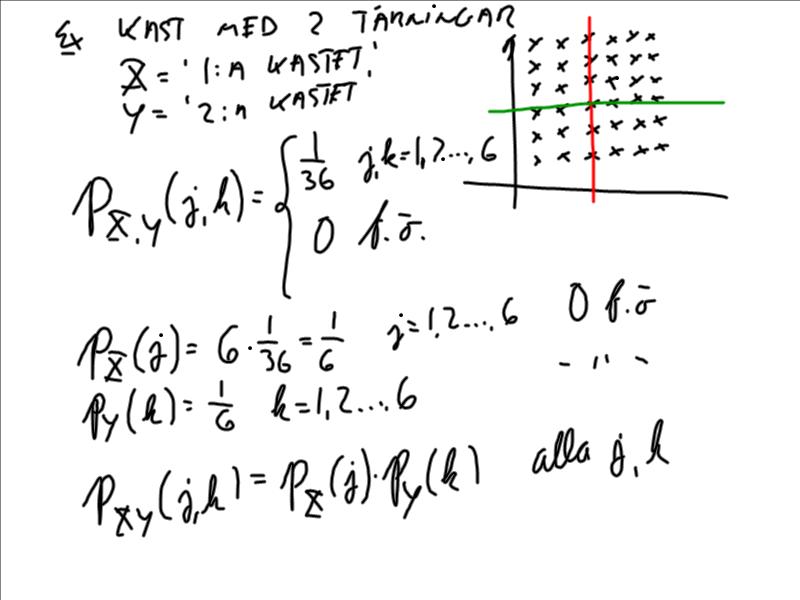 Ex KAST MED 2 TÄRNINGAR
X = '1:A KASTET'
Y = '2:A KASTET
P_{X,Y}(j,k) = { 1/36 j,k=1,2...,6
0 f.ö.
P_X(j) = 6 · 1/36 = 1/6 j=1,2...,6 0 f.ö
P_Y(k) = 1/6 k=1,2...,6 - " -
P_{XY}(j,k) = P_X(j)·P_Y(k) alla j,k